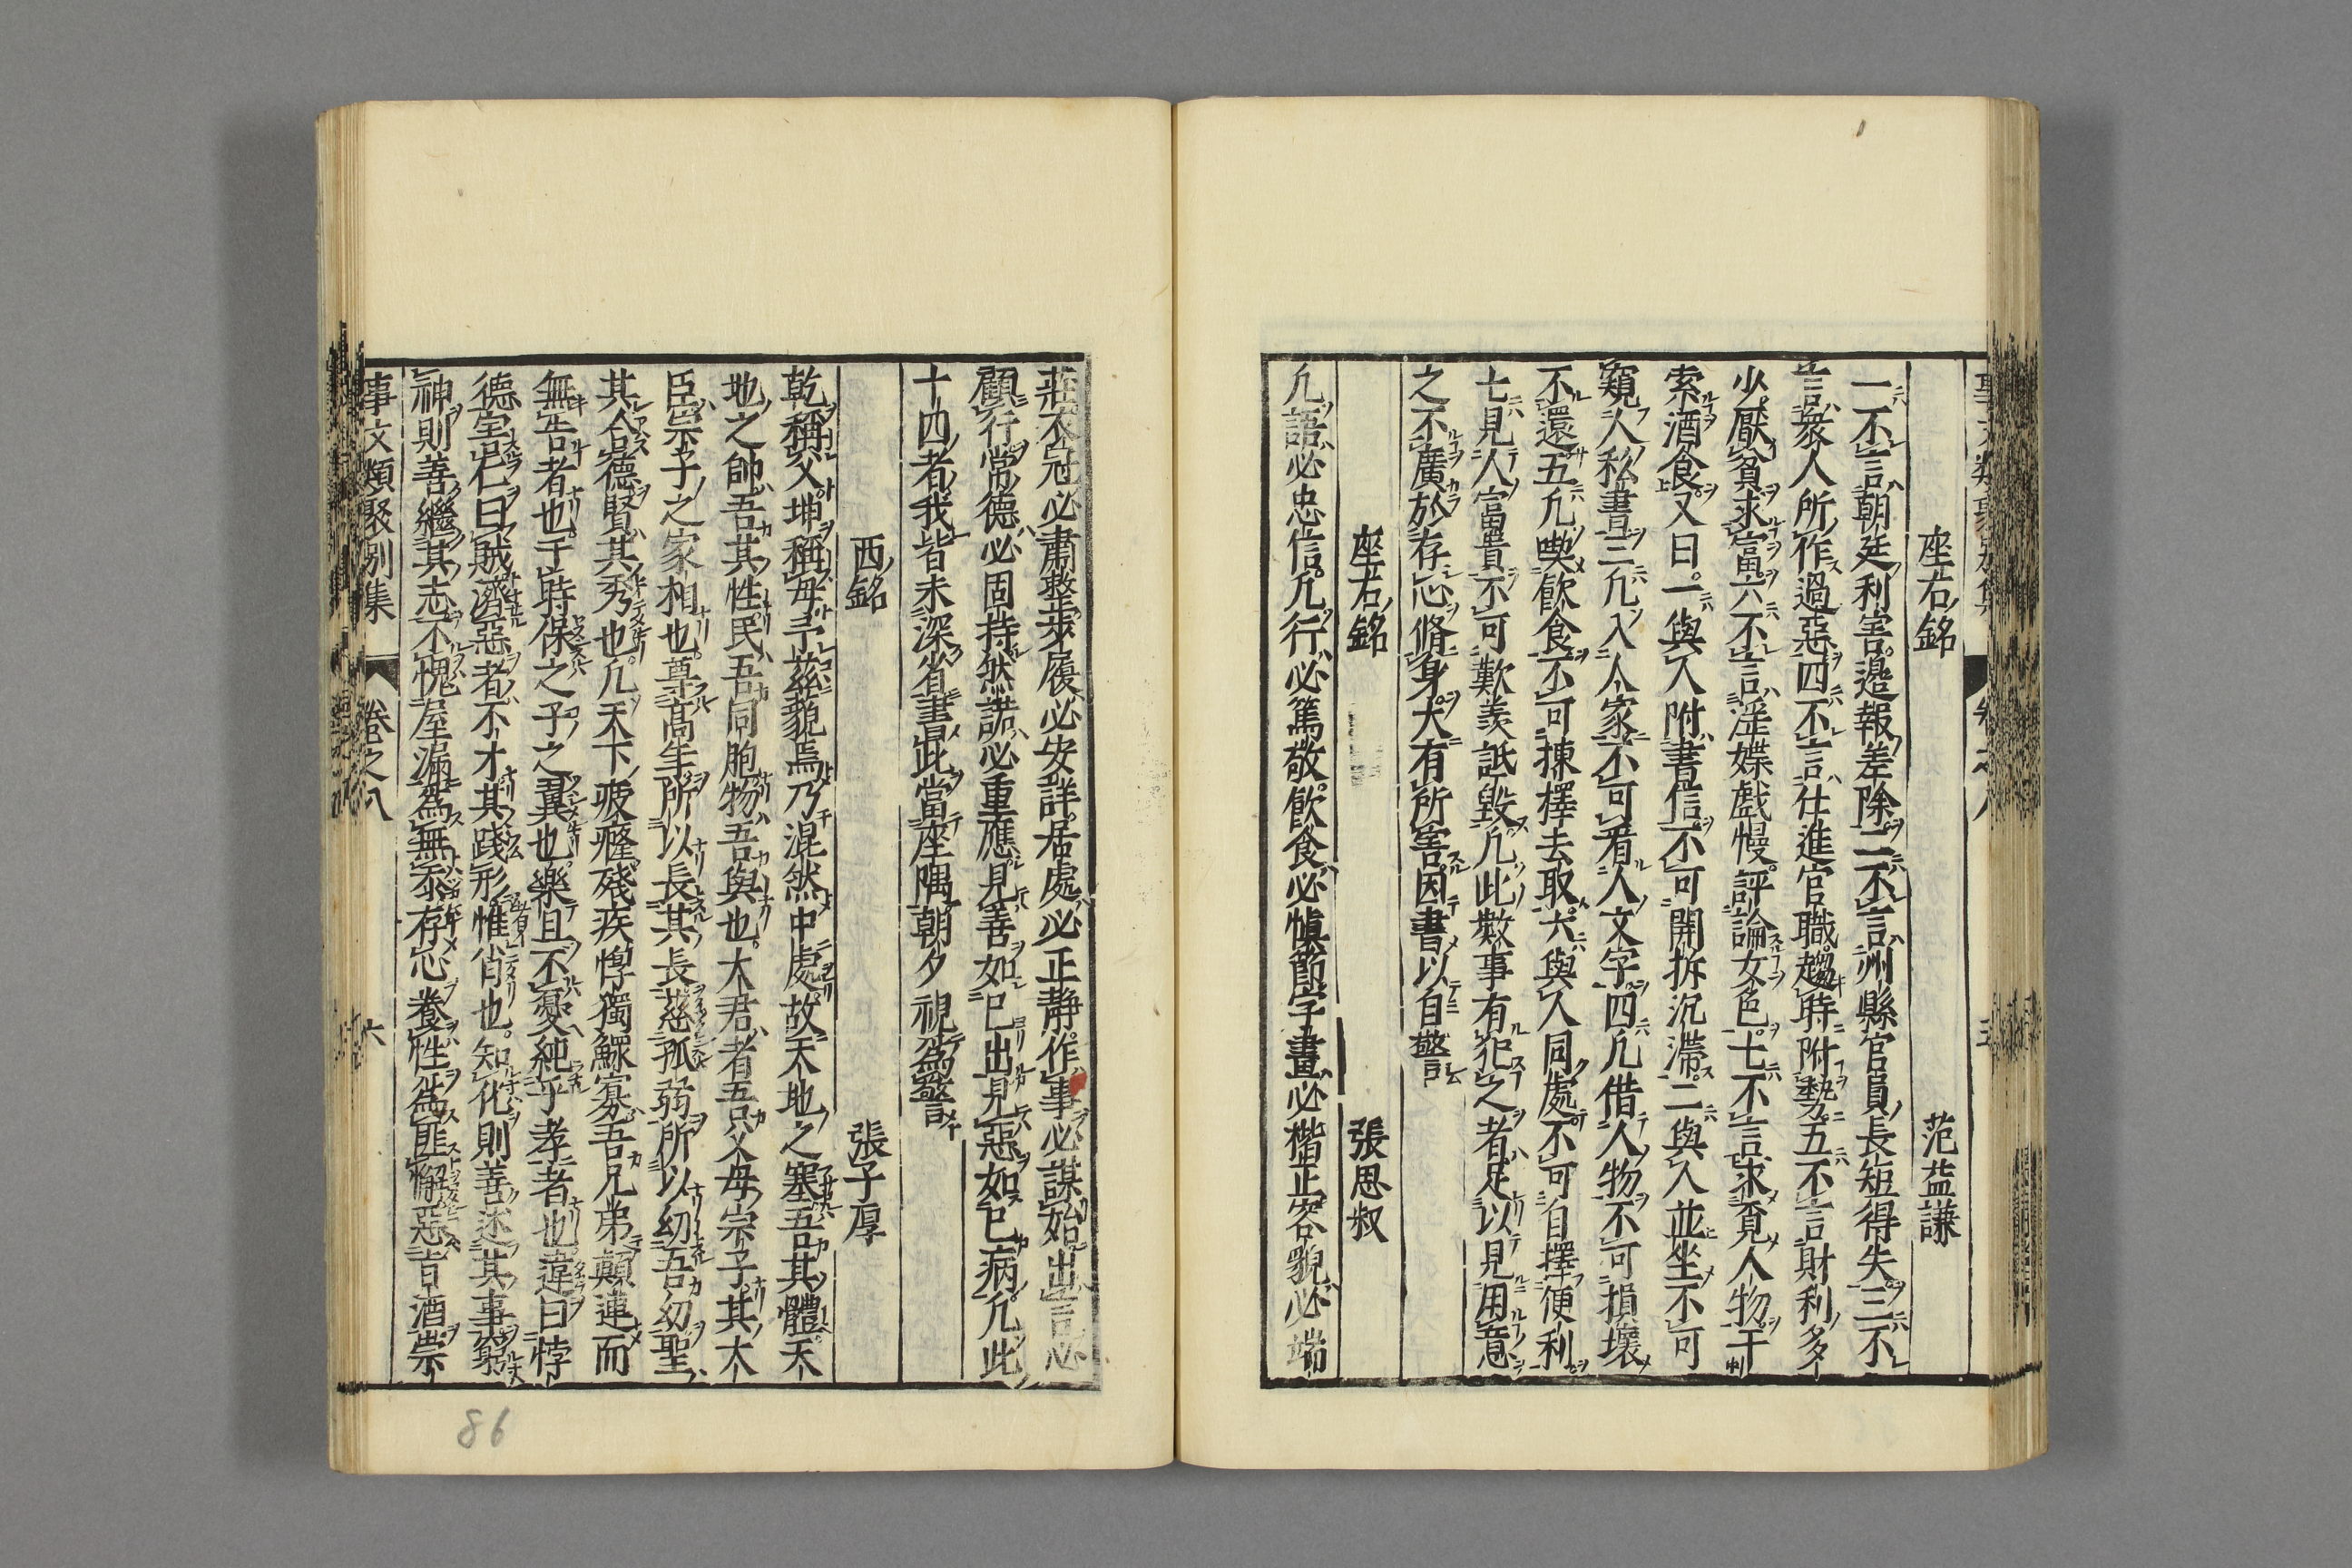 座右銘　范益謙
一不言朝廷利害邉報差除二不言州縣官員長短得失三不
言衆人所作過惡四不言仕進官職趨時附勢五不言財利多
少厭貧求富六不言淫媟戲慢評論女色七不言求覓人物干
索酒食又曰一與人附書信不可開拆沉滯二與人並坐不可
窺人私書三凢入人家不可看人文字四凢借人物不可損壞
不還五凢喫飲食不可揀擇去取六與人同處不可自擇便利
七見人富貴不可歎羡詆毀凢此數事有犯之者足以見用意
之不廣於存心脩身大有所害因書以自警
座右銘　張思叔
凢語必忠信凢行必篤敬飲食必愼節字畫必楷正容貌必端
莊衣冠必肅整步履必安詳居處必正静作事必謀始出言必
顧行常德必固持然諾必重應見善如己出見惡如己病凢此
十四者我皆未深省書此當座隅朝夕視爲警
西銘　張子厚
乾稱父坤稱母予茲藐焉乃混然中處故天地之塞吾其體天
地之帥吾其性民吾同胞物吾與也大君者吾父母宗子其大
臣宗子之家相也尊高年所以長其長慈孤弱所以幼吾幼聖
其合德賢其秀也凢天下疲癃殘疾惸獨鰥寡吾兄弟顛連而
無告者也于時保之子之翼也樂且不憂純乎孝者也違曰悖
德害仁曰賊濟惡者不才其踐形惟肖也知化則善述其事窮
神則善繼其志不愧屋漏爲無忝存心養性爲匪懈惡旨酒崇
事文類聚別集　卷之八　六
86